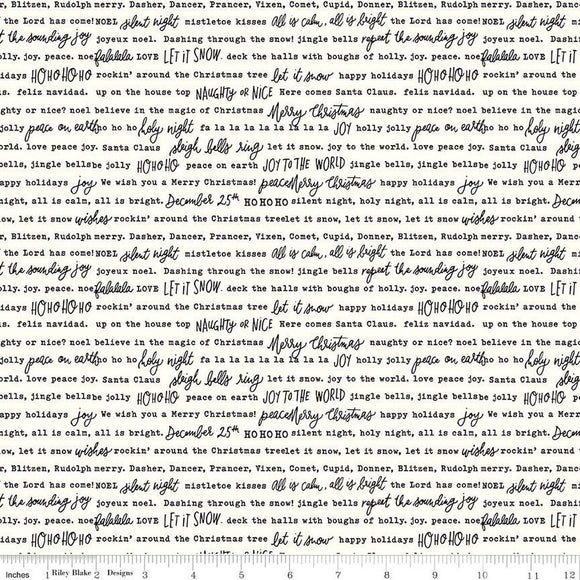 r, Blitzen, Rudolph merry. Dasher, Dancer, Prancer, Vixen, Comet, Cupid, Donner, Blitzen, Rudolph merry.
the Lord has come! NOEL silent night mistletoe kisses all is calm, all is bright the Lord has come! NOEL silent night
t the sounding joy joyeux noel. Dashing through the snow! jingle bells repeat the sounding joy joyeux noel. Dashi
olly. joy. peace. noe falalala LOVE LET IT SNOW. deck the halls with boughs of holly. joy. peace. noe falalala LOVE LET IT
idays HO HO HO HO rockin' around the Christmas tree let it snow happy holidays HO HO HO HO rockin' around the
s. feliz navidad. up on the house top NAUGHTY OR NICE Here comes Santa Claus. feliz navidad. up on the house
ghty or nice? noel believe in the magic of Christmas Merry Christmas naughty or nice? noel believe in the magi
jolly peace on earth ho ho ho holy night fa la la la la la la la la JOY holly jolly peace on earth ho ho ho holy night
orld. love peace joy. Santa Claus sleigh bells ring let it snow. joy to the world. love peace joy. Santa Claus sleigh
bells, jingle bells be jolly HO HO HO peace on earth JOY TO THE WORLD jingle bells, jingle bells be jolly HO HO HO pe
appy holidays joy We wish you a Merry Christmas! peace Merry Christmas happy holidays joy We wish you a Merr
night, all is calm, all is bright. December 25th HO HO HO silent night, holy night, all is calm, all is bright. Decem
ow, let it snow wishes rockin' around the Christmas tree let it snow, let it snow wishes rockin' around t
r, Blitzen, Rudolph merry. Dasher, Dancer, Prancer, Vixen, Comet, Cupid, Donner, Blitzen, Rudolph merry.
the Lord has come! NOEL silent night mistletoe kisses all is calm, all is bright the Lord has come! NOEL silent night
t the sounding joy joyeux noel. Dashing through the snow! jingle bells repeat the sounding joy joyeux noel. Dashi
olly. joy. peace. noe falalala LOVE LET IT SNOW. deck the halls with boughs of holly. joy. peace. noe falalala LOVE LET IT
idays HO HO HO HO rockin' around the Christmas tree let it snow happy holidays HO HO HO HO rockin' around the
s. feliz navidad. up on the house top NAUGHTY OR NICE Here comes Santa Claus. feliz navidad. up on the house
ghty or nice? noel believe in the magic of Christmas Merry Christmas naughty or nice? noel believe in the magi
jolly peace on earth ho ho ho holy night fa la la la la la la la la JOY holly jolly peace on earth ho ho ho holy night
orld. love peace joy. Santa Claus sleigh bells ring let it snow. joy to the world. love peace joy. Santa Claus sleigh
bells, jingle bells be jolly HO HO HO peace on earth JOY TO THE WORLD jingle bells, jingle bells be jolly HO HO HO pe
appy holidays joy We wish you a Merry Christmas! peace Merry Christmas happy holidays joy We wish you a Merr
night, all is calm, all is bright. December 25th HO HO HO silent night, holy night, all is calm, all is bright. Decem
ow, let it snow wishes rockin' around the Christmas tree let it snow, let it snow wishes rockin' around t
r, Blitzen, Rudolph merry. Dasher, Dancer, Prancer, Vixen, Comet, Cupid, Donner, Blitzen, Rudolph merry.
the Lord has come! NOEL silent night mistletoe kisses all is calm, all is bright the Lord has come! NOEL silent night
t the sounding joy joyeux noel. Dashing through the snow! jingle bells repeat the sounding joy joyeux noel. Dashi
olly. joy. peace. noe falalala LOVE LET IT SNOW. deck the halls with boughs of holly. joy. peace. noe falalala LOVE LET IT
idays HO HO HO HO rockin' around the Christmas tree let it snow happy holidays HO HO HO HO rockin' around the
Inches 1 Riley Blake 2 Designs 3 4 5 6 7 8 9 10 11 12